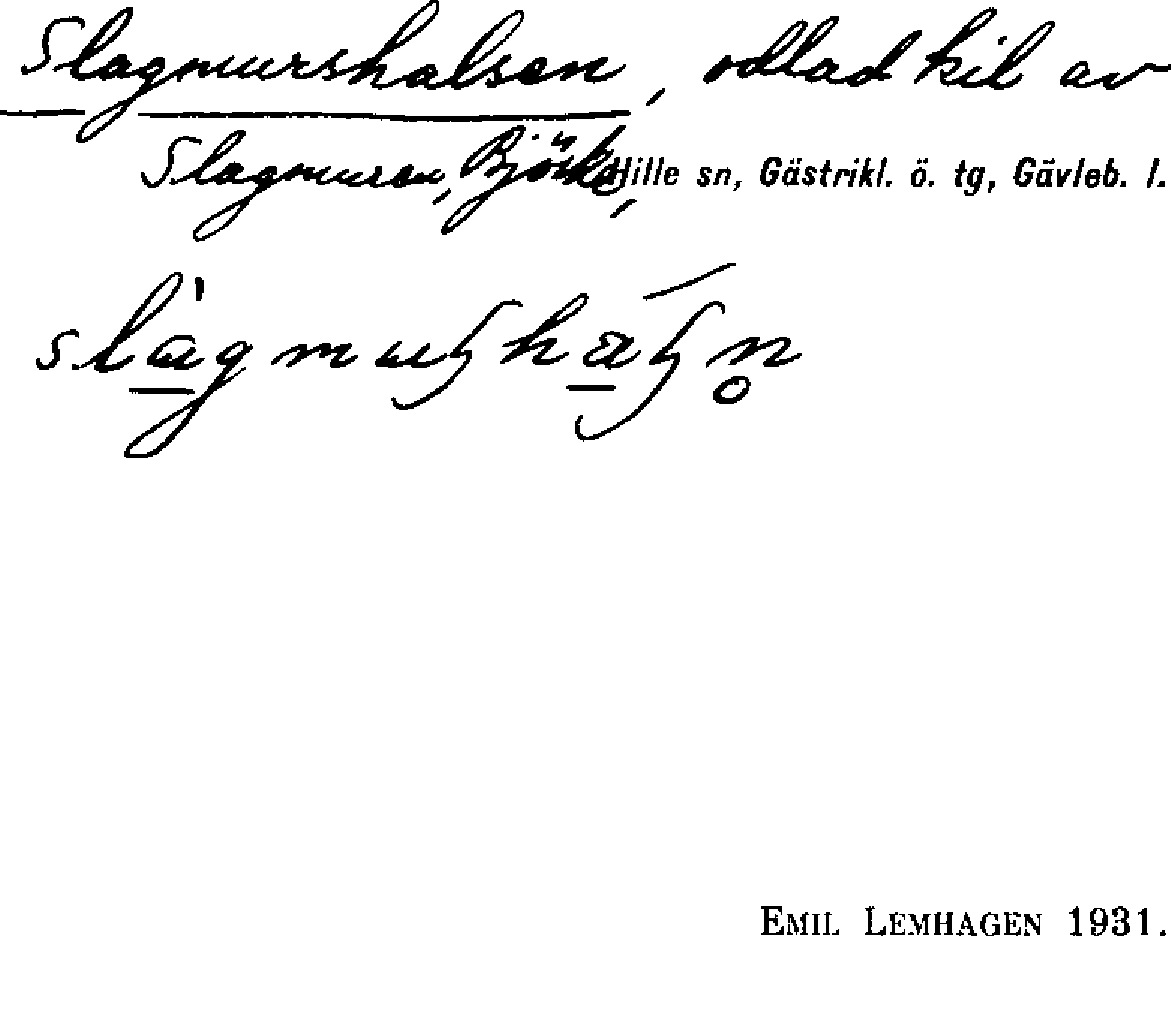 Slagmurshalsen, odlad kil av
Slagmuren, Björke, Hille sn, Gästrikl. ö. tg, Gävleb. l.
EMIL LEMHAGEN 1931.